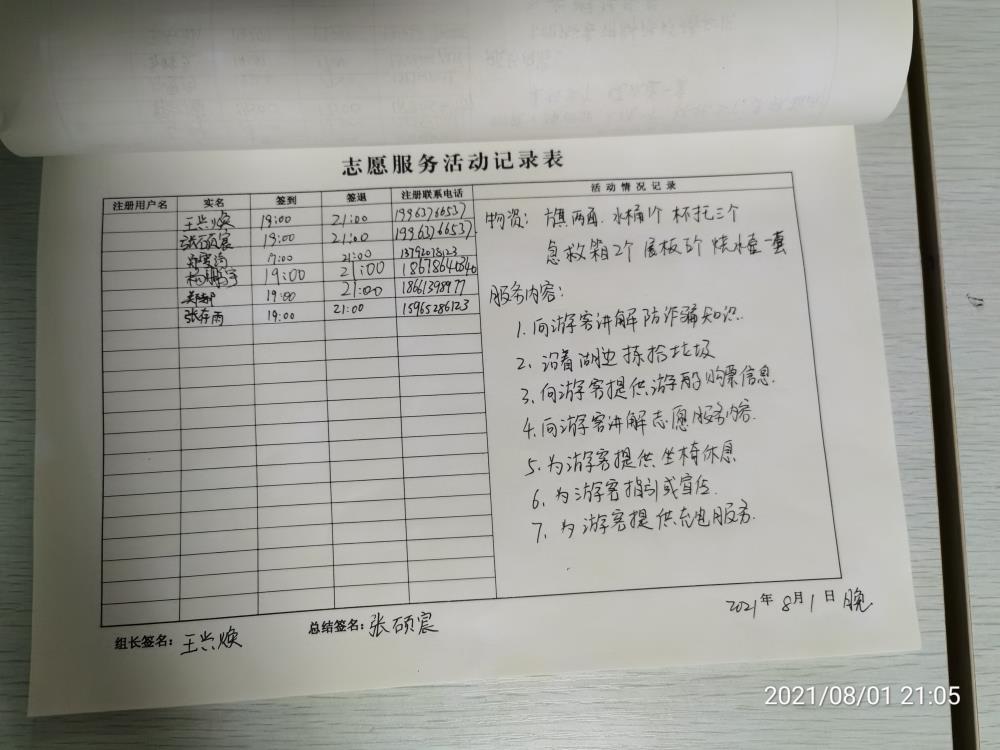 志愿服务活动记录表
注册用户名 实名 签到 签退 注册联系电话 活动情况记录
王兴焕 19:00 21:00 19963766537
张硕宸 19:00 21:00 19963766537
21:00 13792078123
杨 19:00 21:00 18678640840
19:00 21:00 18661398977
张存雨 19:00 21:00 15965286123
物资: 旗两面 水桶1个 杯托三个
急救箱2个 展板5个 烧水壶一套
服务内容:
1. 向游客讲解防诈骗知识.
2. 沿着湖边 拣拾垃圾
3. 向游客提供游船购票信息.
4. 向游客讲解志愿服务内容.
5. 为游客提供坐椅休息
6. 为游客指引
7. 为游客提供充电服务.
2021年8月1日 晚
组长签名: 王兴焕 总结签名: 张硕宸
2021/08/01 21:05